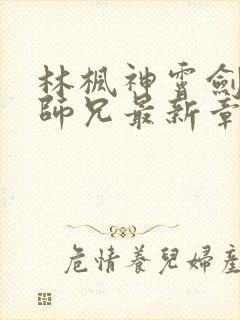 林楓神霄劍
師兄最新章
危情養兒婦產